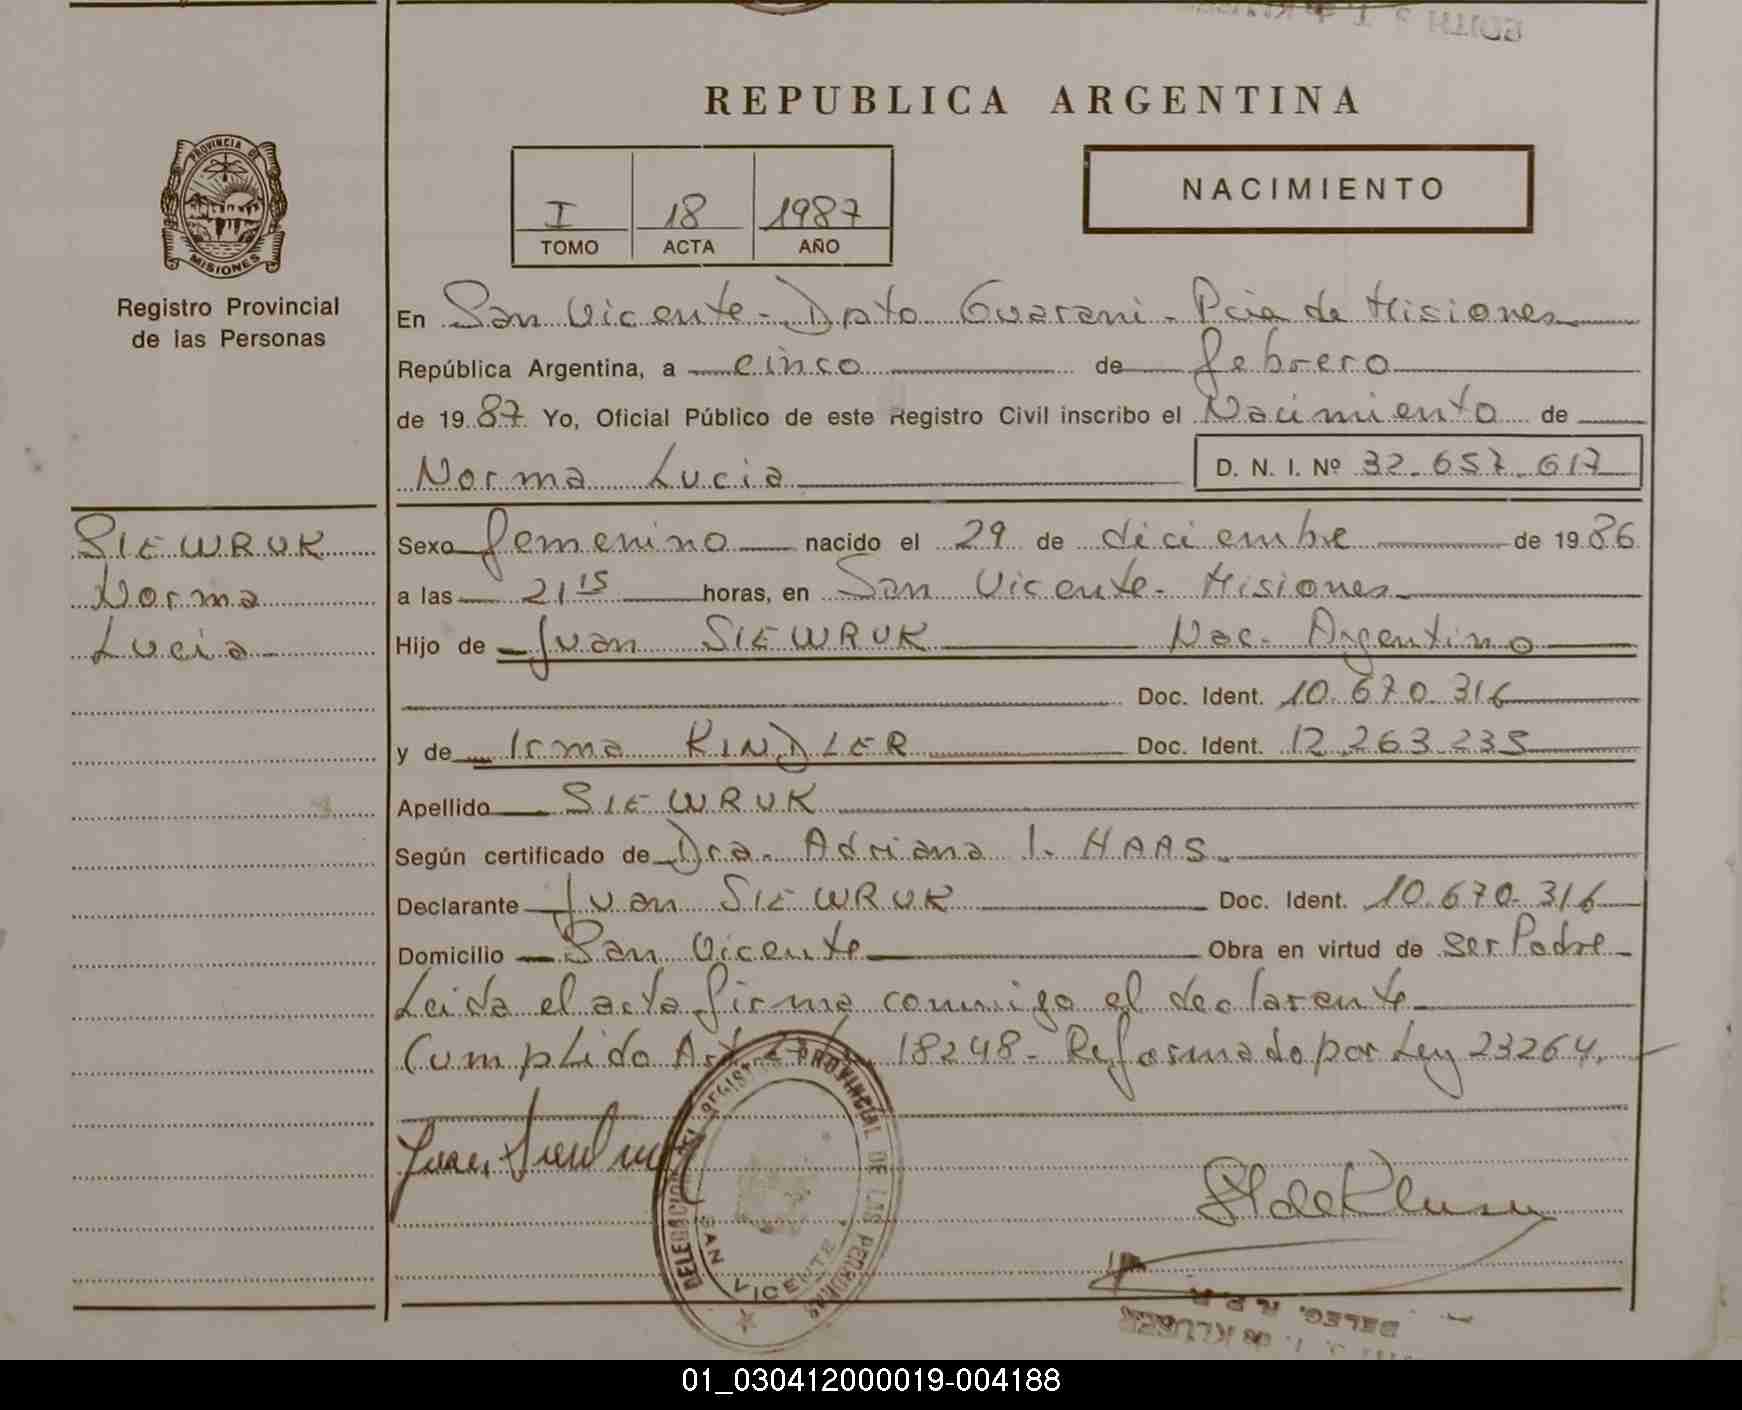 REPUBLICA ARGENTINA
PROVINCIA DE
MISIONES
Registro Provincial
de las Personas
I 18 1987
TOMO ACTA AÑO
NACIMIENTO
En San Vicente - Dpto Guarani - Pcia de Misiones
República Argentina, a cinco de febrero
de 1987 Yo, Oficial Público de este Registro Civil inscribo el Nacimiento de
Norma Lucia D. N. I. Nº 32.657.617
SIEWRUK
Norma
Lucia
Sexo femenino nacido el 29 de diciembre de 1986
a las 21 15 horas, en San Vicente - Misiones
Hijo de Juan SIEWRUK Nac. Argentino
Doc. Ident. 10.670.316
y de Irma KINDLER Doc. Ident. 12.263.235
Apellido SIEWRUK
Según certificado de Dra. Adriana I. HAAS
Declarante Juan SIEWRUK Doc. Ident. 10.670.316
Domicilio San Vicente Obra en virtud de ser Padre
Leida el acta firma conmigo el declarante
Cumplido Art 18248 - Reformado por Ley 23264.
DELEGACION REGISTRO PROVINCIAL DE LAS PERSONAS
SAN VICENTE
DELEG. R.P.P.
KLUGER
01_030412000019-004188